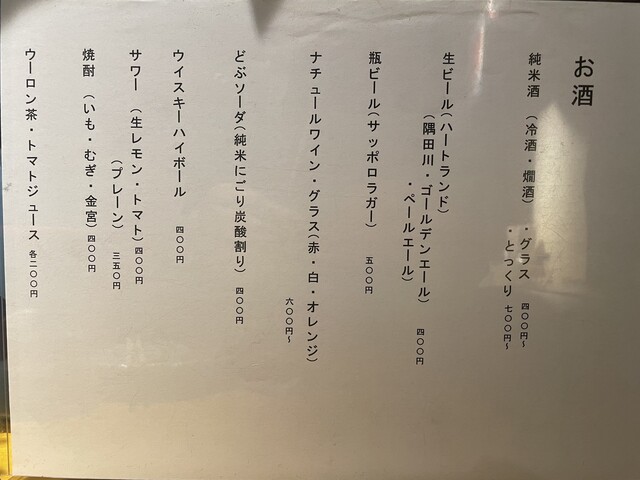 お酒
純米酒 （冷酒・燗酒） ・グラス 四〇〇円〜
・とっくり 七〇〇円〜
生ビール（ハートランド）
（隅田川・ゴールデンエール）
・ペールエール） 四〇〇円
瓶ビール（サッポロラガー） 五〇〇円
ナチュールワイン・グラス（赤・白・オレンジ）
六〇〇円〜
どぶソーダ（純米にごり炭酸割り） 四〇〇円
ウイスキーハイボール 四〇〇円
サワー （生レモン・トマト） 四〇〇円
（プレーン） 三五〇円
焼酎 （いも・むぎ・金宮） 四〇〇円
ウーロン茶・トマトジュース 各二〇〇円